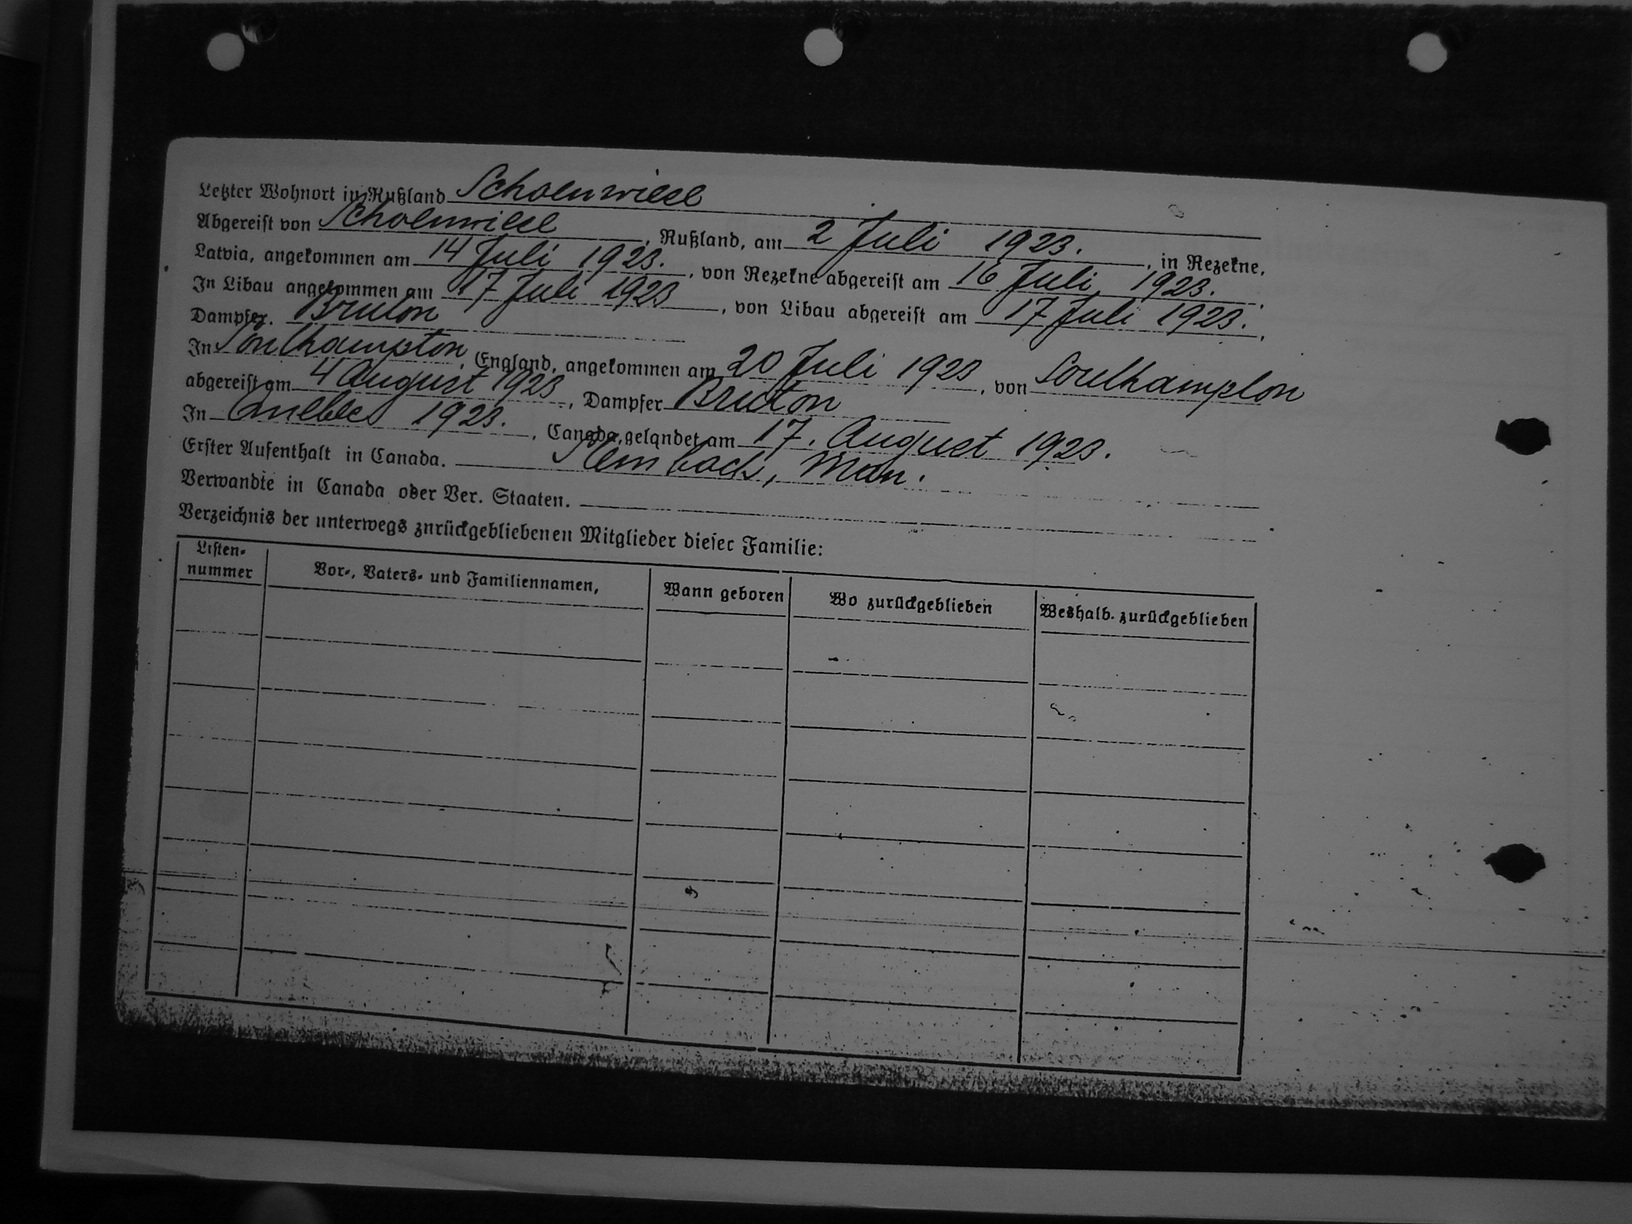 Letzter Wohnort in Rußland Schoenwiese
Abgereist von Schoenwiese, Rußland, am 2 Juli 1923., in Rezekne,
Latvia, angekommen am 14 Juli 1923., von Rezekne abgereist am 16 Juli 1923.
In Libau angekommen am 17 Juli 1923, von Libau abgereist am 17 Juli 1923.,
Dampfer. Bruton
In Southampton, England, angekommen am 20 Juli 1923, von Southampton
abgereist am 4 August 1923, Dampfer Bruton
In Quebec 1923., Canada, gelandet am 17. August 1923.
Erster Aufenthalt in Canada. Steinbach, Man.
Verwandte in Canada oder Ver. Staaten.
Verzeichnis der unterwegs zurückgebliebenen Mitglieder dieser Familie:
Listen-nummer Vor-, Vaters- und Familiennamen, Wann geboren Wo zurückgeblieben Weshalb. zurückgeblieben